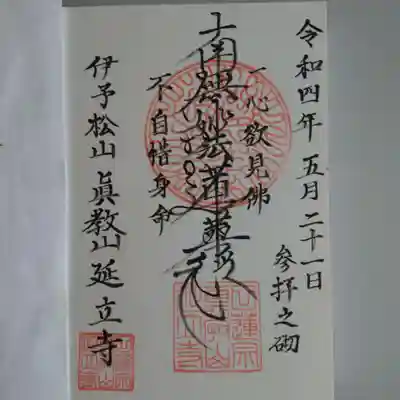 令和四年五月二十一日
参拝之砌
一心欲見佛
南無妙法蓮華経
不自惜身命
伊予松山眞教山延立寺